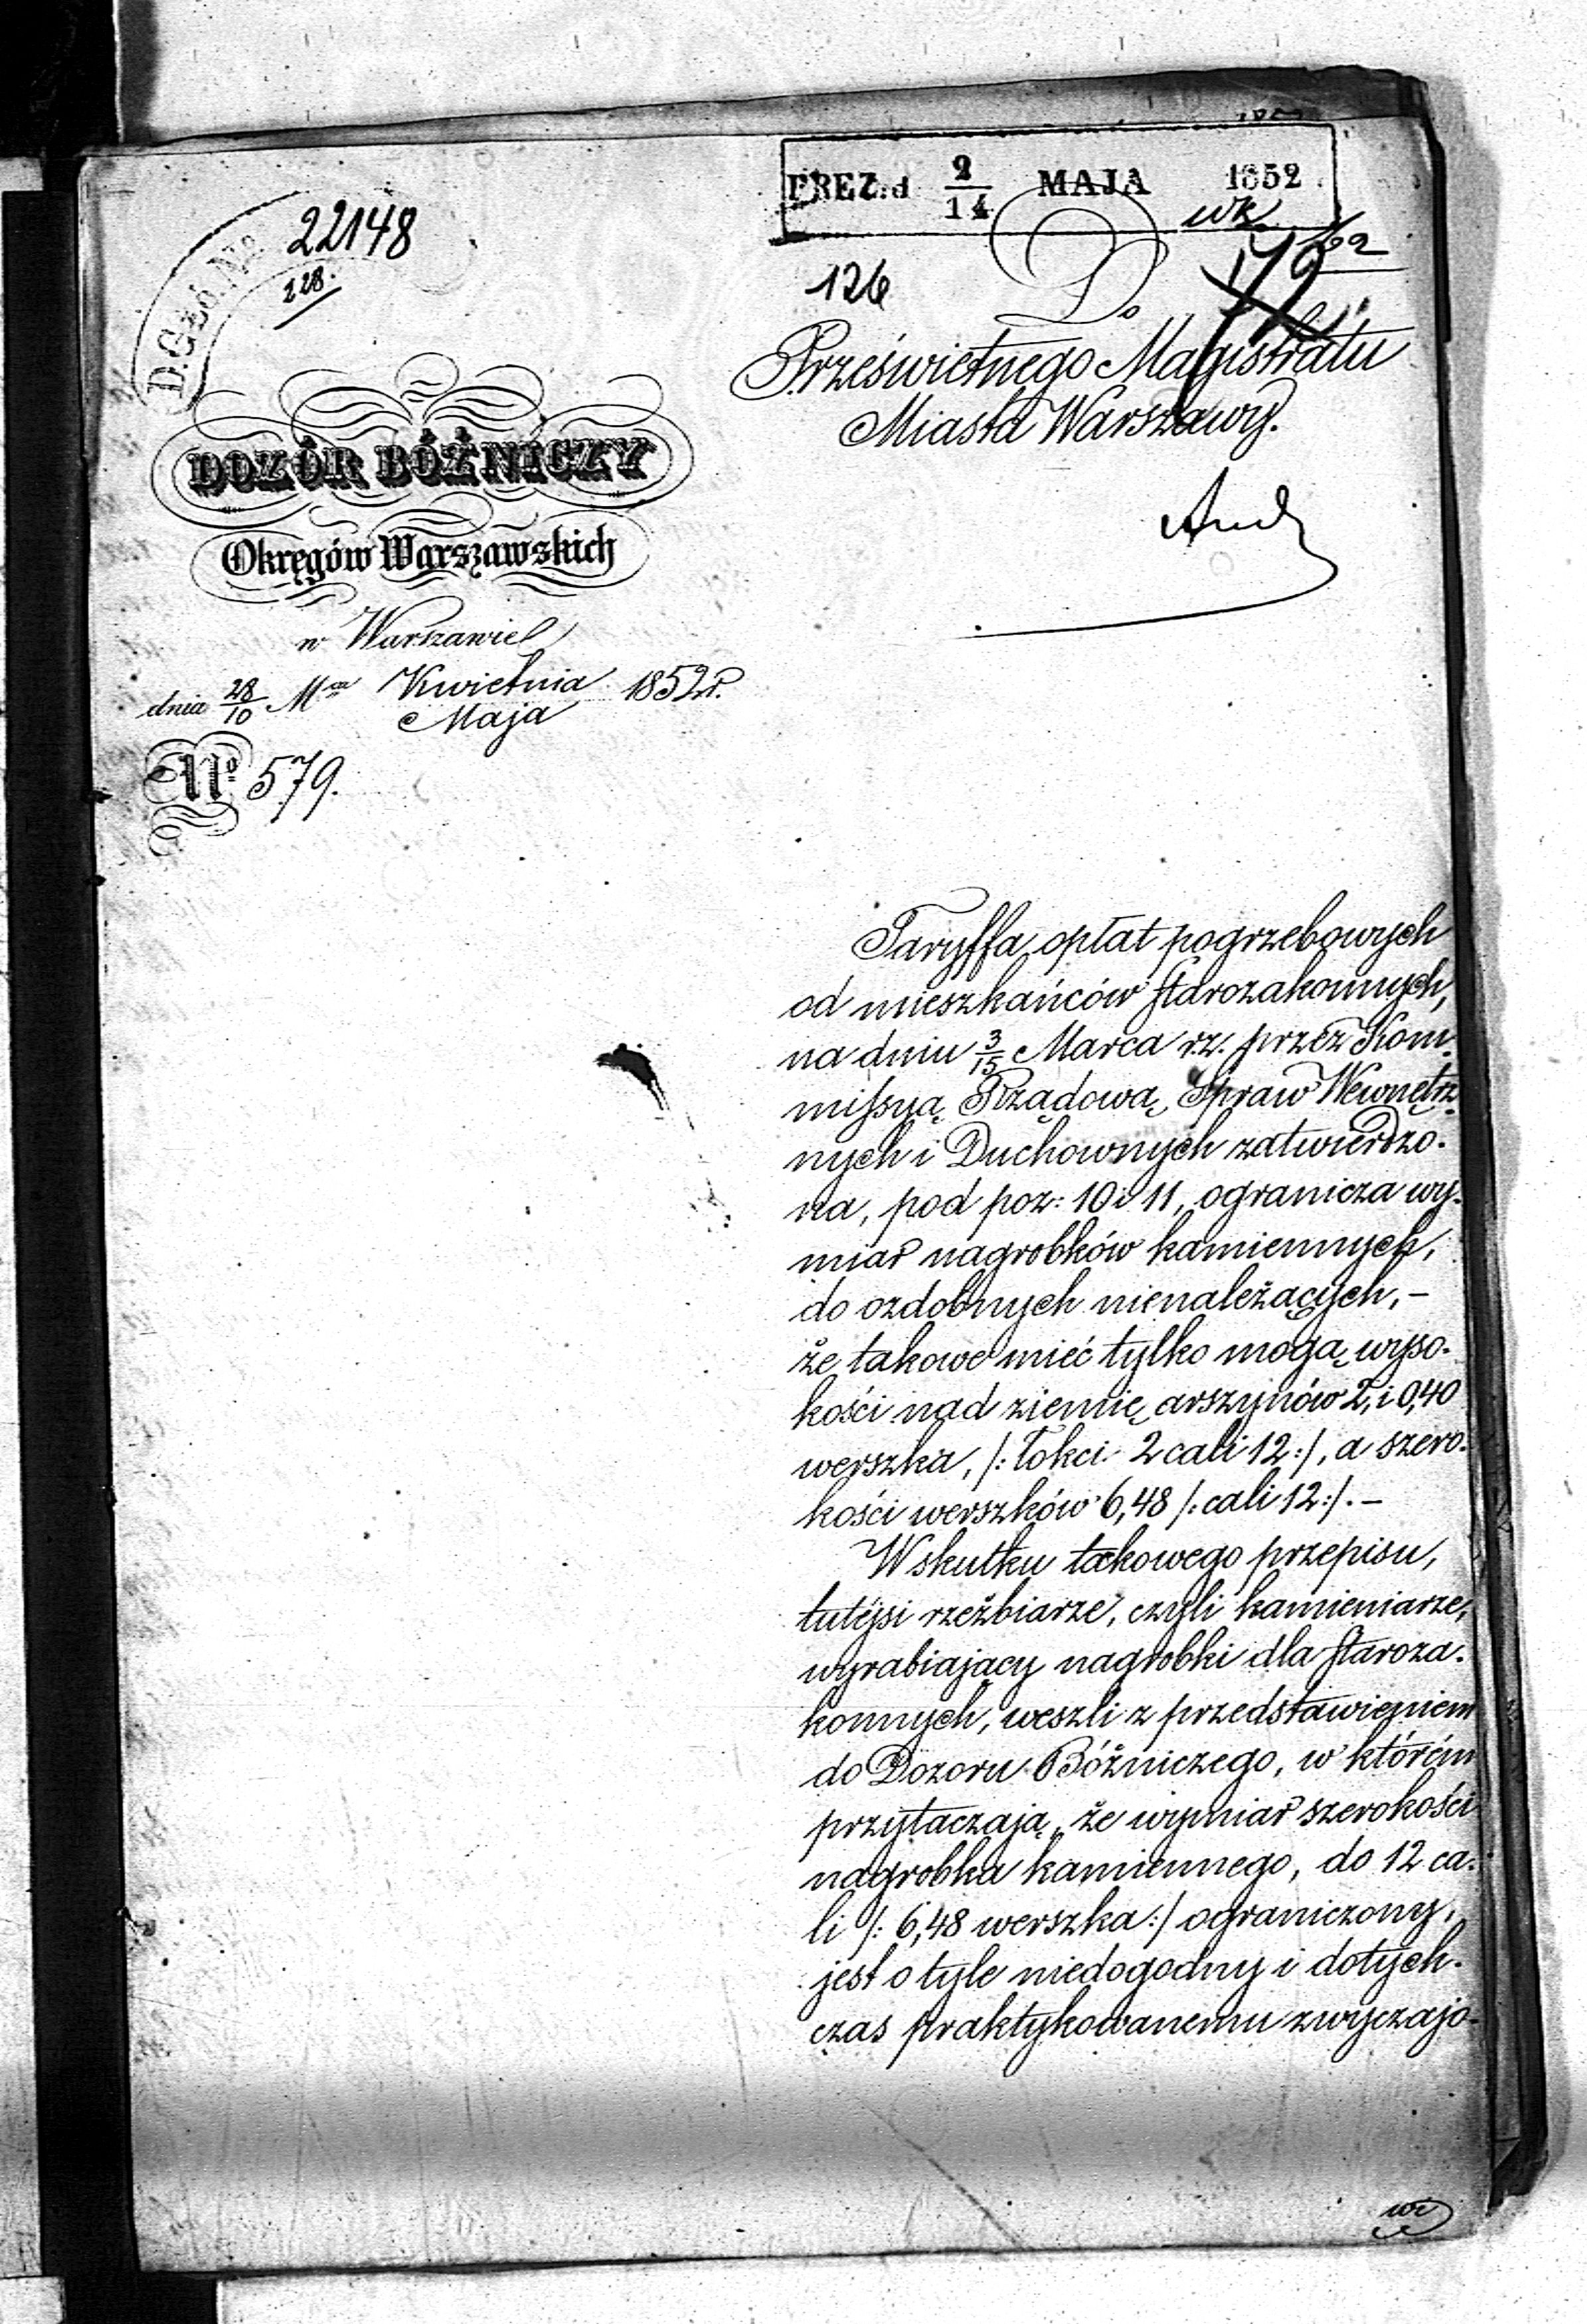 PREZ: d 2/14 MAJA 1852
wk
D.G.Ad. No 22148
228.
126
Do
Prześwietnego Magistratu
Miasta Warszawy.
DOZÓR BÓŻNICZY
Okręgów Warszawskich
w Warszawie
dnia 28/10 Mca Kwietnia/Maja 1852 r.
No 579.
Taryffa opłat pogrzebowych
od mieszkańców starozakonnych,
na dniu 3/15 Marca r.z. przez Kom-
missyą Rządową Spraw Wewnętrz
nych i Duchownych zatwierdzo-
na, pod poz: 10 i 11, ogranicza wy-
miar nagrobków kamiennych,
do ozdobnych nienależących, –
że takowe mieć tylko mogą wyso-
kości nad ziemię arszynów 2, i 0,40
werszka, /: łokci 2 cali 12 :/, a szero-
kości werszków 6,48 /: cali 12 :/. –
W skutku takowego przepisu,
tutéjsi rzeźbiarze, czyli kamieniarze,
wyrabiający nagrobki dla staroza-
konnych, weszli z przedstawieniem
do Dozoru Bóżniczego, w którém
przytaczają, że wymiar szerokości
nagrobka kamiennego, do 12 ca-
li /: 6,48 werszka :/ ograniczony,
jest o tyle niedogodny i dotych-
czas praktykowanemu zwyczajo-